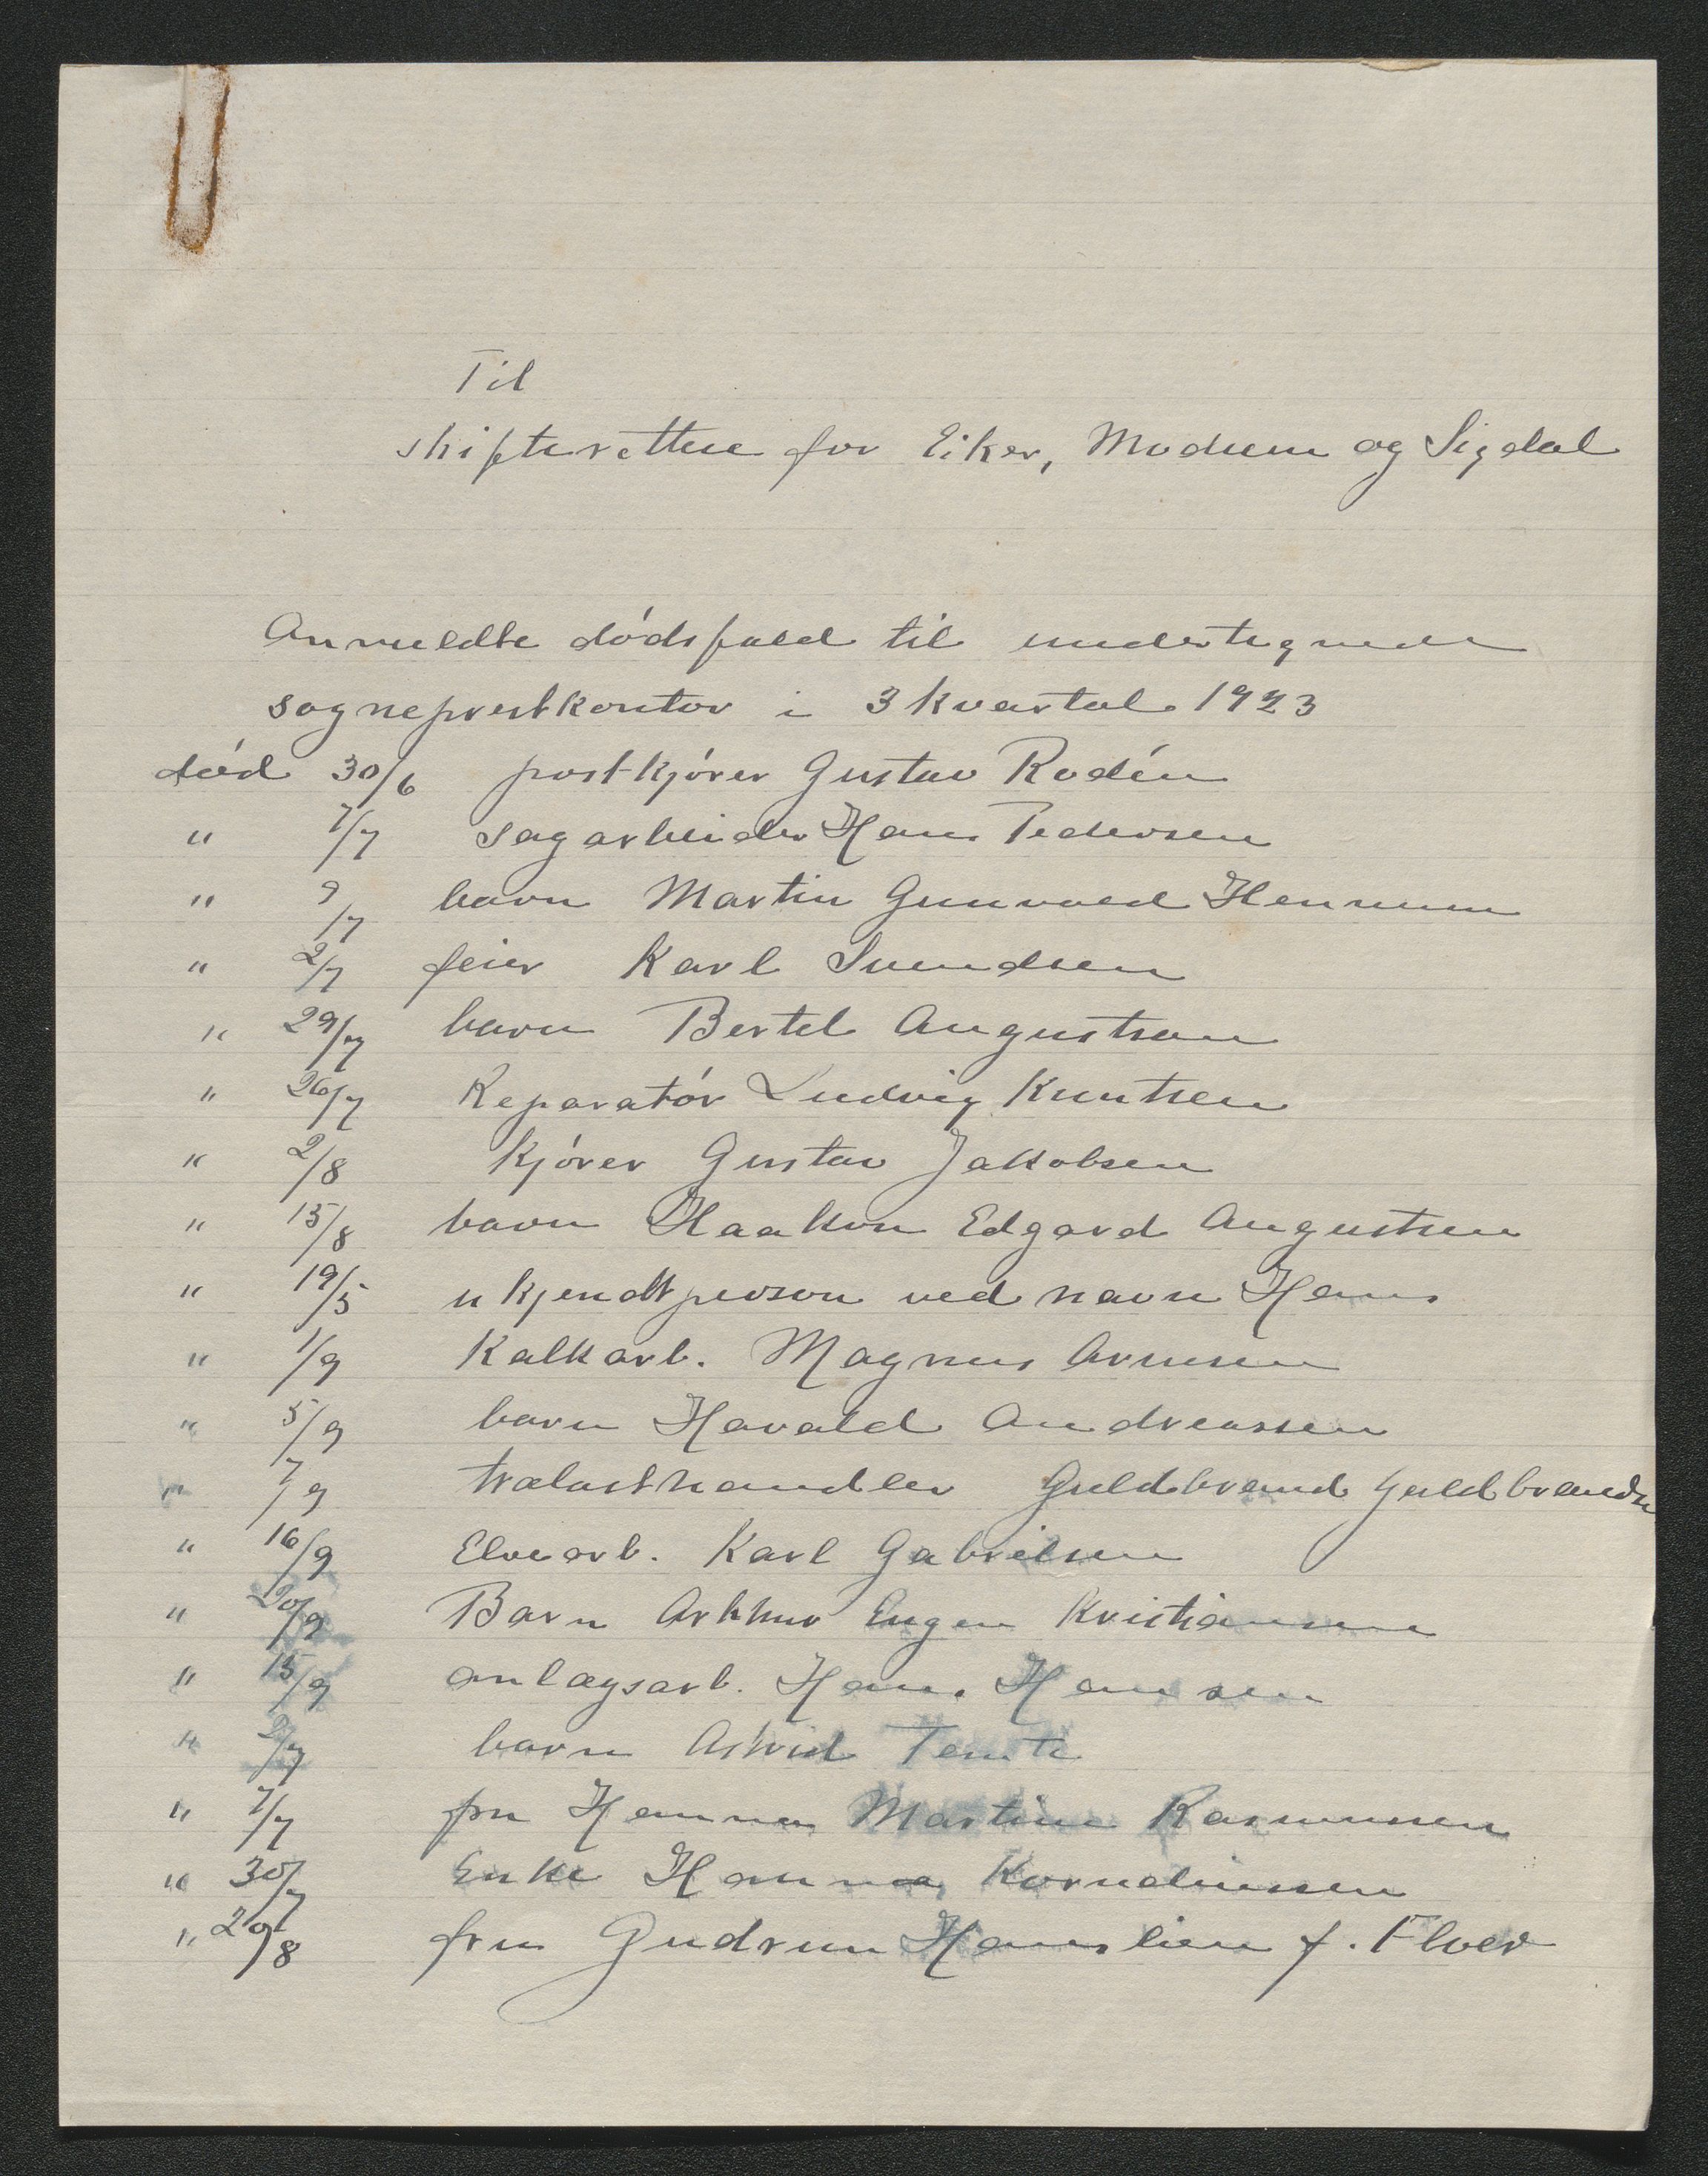 Til
skifteretten for Eiker, Modum og Sigdal
Anmeldte dødsfald til undertegnede
sogneprestkontor i 3 kvartal 1923
død 30/6 postkjører Gustav Rodén
" 7/7 sagarbeider Hans Pedersen
" 9/7 barn Martin Gunvald Hennum
" 2/7 feier Karl Svendsen
" 29/7 barn Bertel Augustsen
" 26/7 Reparatør Ludvig Knutsen
" 2/8 kjører Gustav Jakobsen
" 15/8 barn Haakon Edgard Augustsen
" 19/5 ukjendt person ved navn Hans
" 1/9 Kalkarb. Magnus Arnesen
" 5/9 barn Harald Andreassen
" 7/9 trælasthandler Guldbrand Guldbrandsen
" 16/9 Elvearb. Karl Gabrielsen
" 20/9 Barn Arthur Eugen Kristiansen
" 15/9 anlægsarb. Hans Hansen
" 2/7 barn Astrid Temte
" 7/7 fru Hanna Martine Rasmussen
" 30/7 Enke Hanna Korneliussen
" 29/8 fru Gudrun Hamslien f. Elver